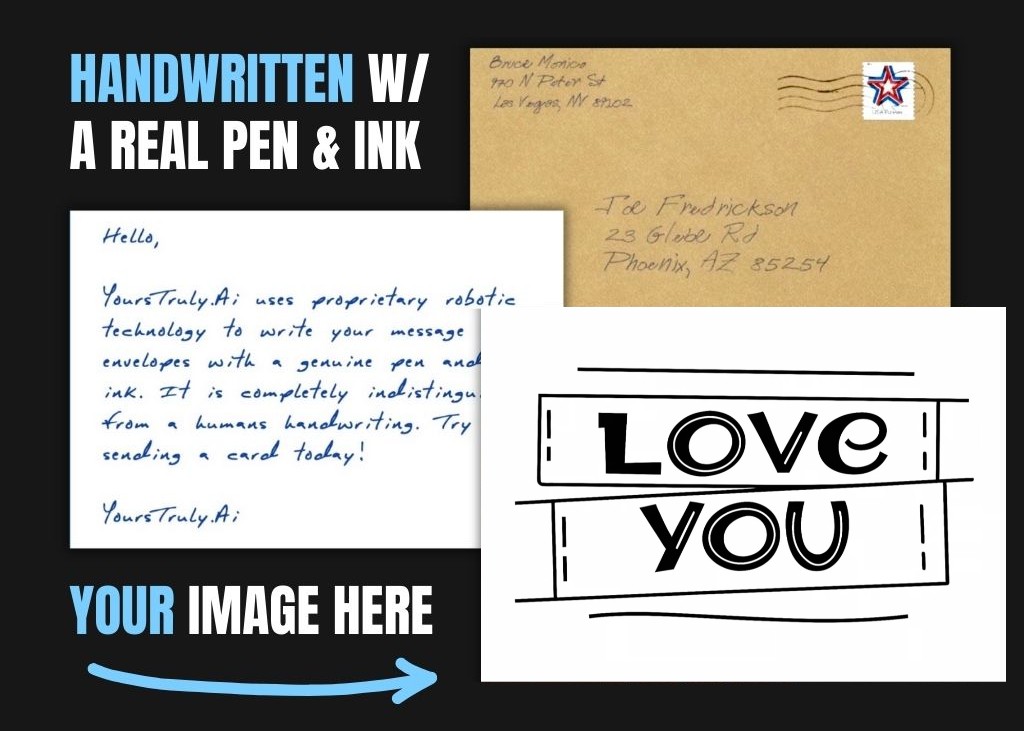 HANDWRITTEN W/
A REAL PEN & INK
Bruce Monica
970 N Peter St
Las Vegas, NV 89202
Joe Fredrickson
23 Globe Rd
Phoenix, AZ 85254
Hello,
YoursTruly.Ai uses proprietary robotic
technology to write your message
envelopes with a genuine pen and
ink. It is completely indistingu
from a humans handwriting. Try
sending a card today!
YoursTruly.Ai
LOVE
YOU
YOUR IMAGE HERE